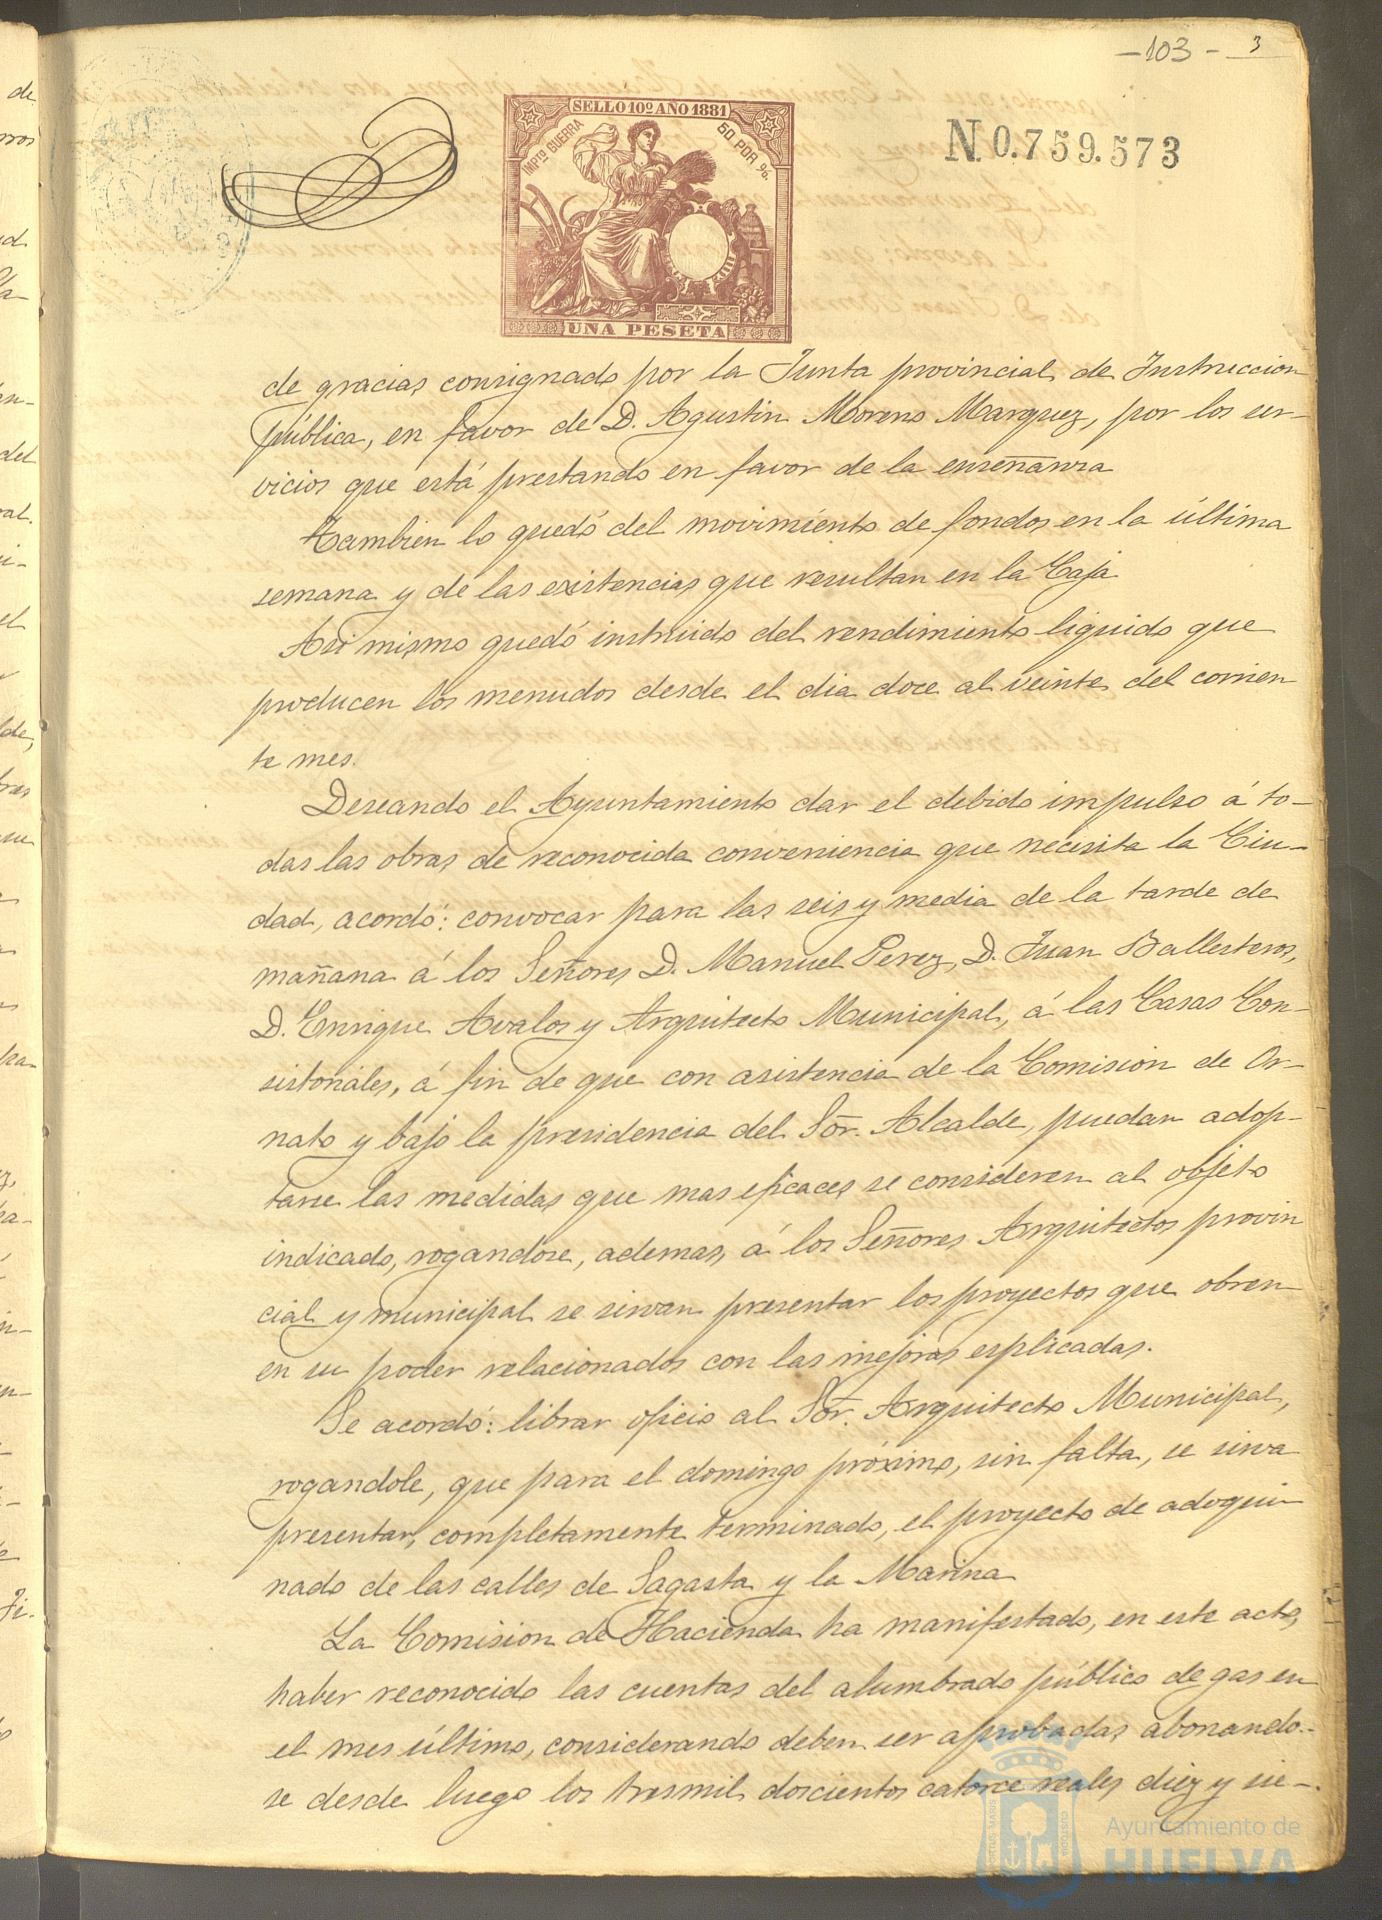 -103- 3
SELLO 10º AÑO 1881
IMPTO GUERRA
50 POR %.
N. 0.759.573
UNA PESETA
de gracias consignado por la Junta provincial de Instruccion
pública, en favor de D. Agustin Moreno Marquez, por los ser-
vicios que está prestando en favor de la enseñanza
Tambien lo quedó del movimiento de fondos en la última
semana y de las existencias que resultan en la Caja
Asi mismo quedó instruido del rendimiento liquido que
producen los menudos desde el dia doce al veinte del corrien
te mes.
Deseando el Ayuntamiento dar el debido impulso á to-
das las obras de reconocida conveniencia que necesita la Ciu-
dad, acordó: convocar para las seis y media de la tarde de
mañana á los Señores D. Manuel Perez, D. Juan Ballesteros,
D. Enrique Avalos y Arquitecto Municipal, á las Casas Con-
sistoriales, á fin de que con asistencia de la Comision de Or-
nato y bajo la presidencia del Sor. Alcalde, puedan adop-
tarse las medidas que mas eficaces se consideren al objeto
indicado, rogandose, ademas, á los Señores Arquitectos provin
cial y municipal se sirvan presentar los proyectos que obren
en su poder relacionados con las mejoras esplicadas.
Se acordó: librar oficio al Sor. Arquitecto Municipal,
rogandole, que para el domingo próximo, sin falta, se sirva
presentar, completamente terminado, el proyecto de adoqui-
nado de las calles de Sagasta y la Marina
La Comision de Hacienda ha manifestado, en este acto,
haber reconocido las cuentas del alumbrado público de gas en
el mes último, considerando deben ser aprobadas, abonando-
se desde luego los tresmil doscientos catorce reales diez y sie-
Ayuntamiento de
HUELVA